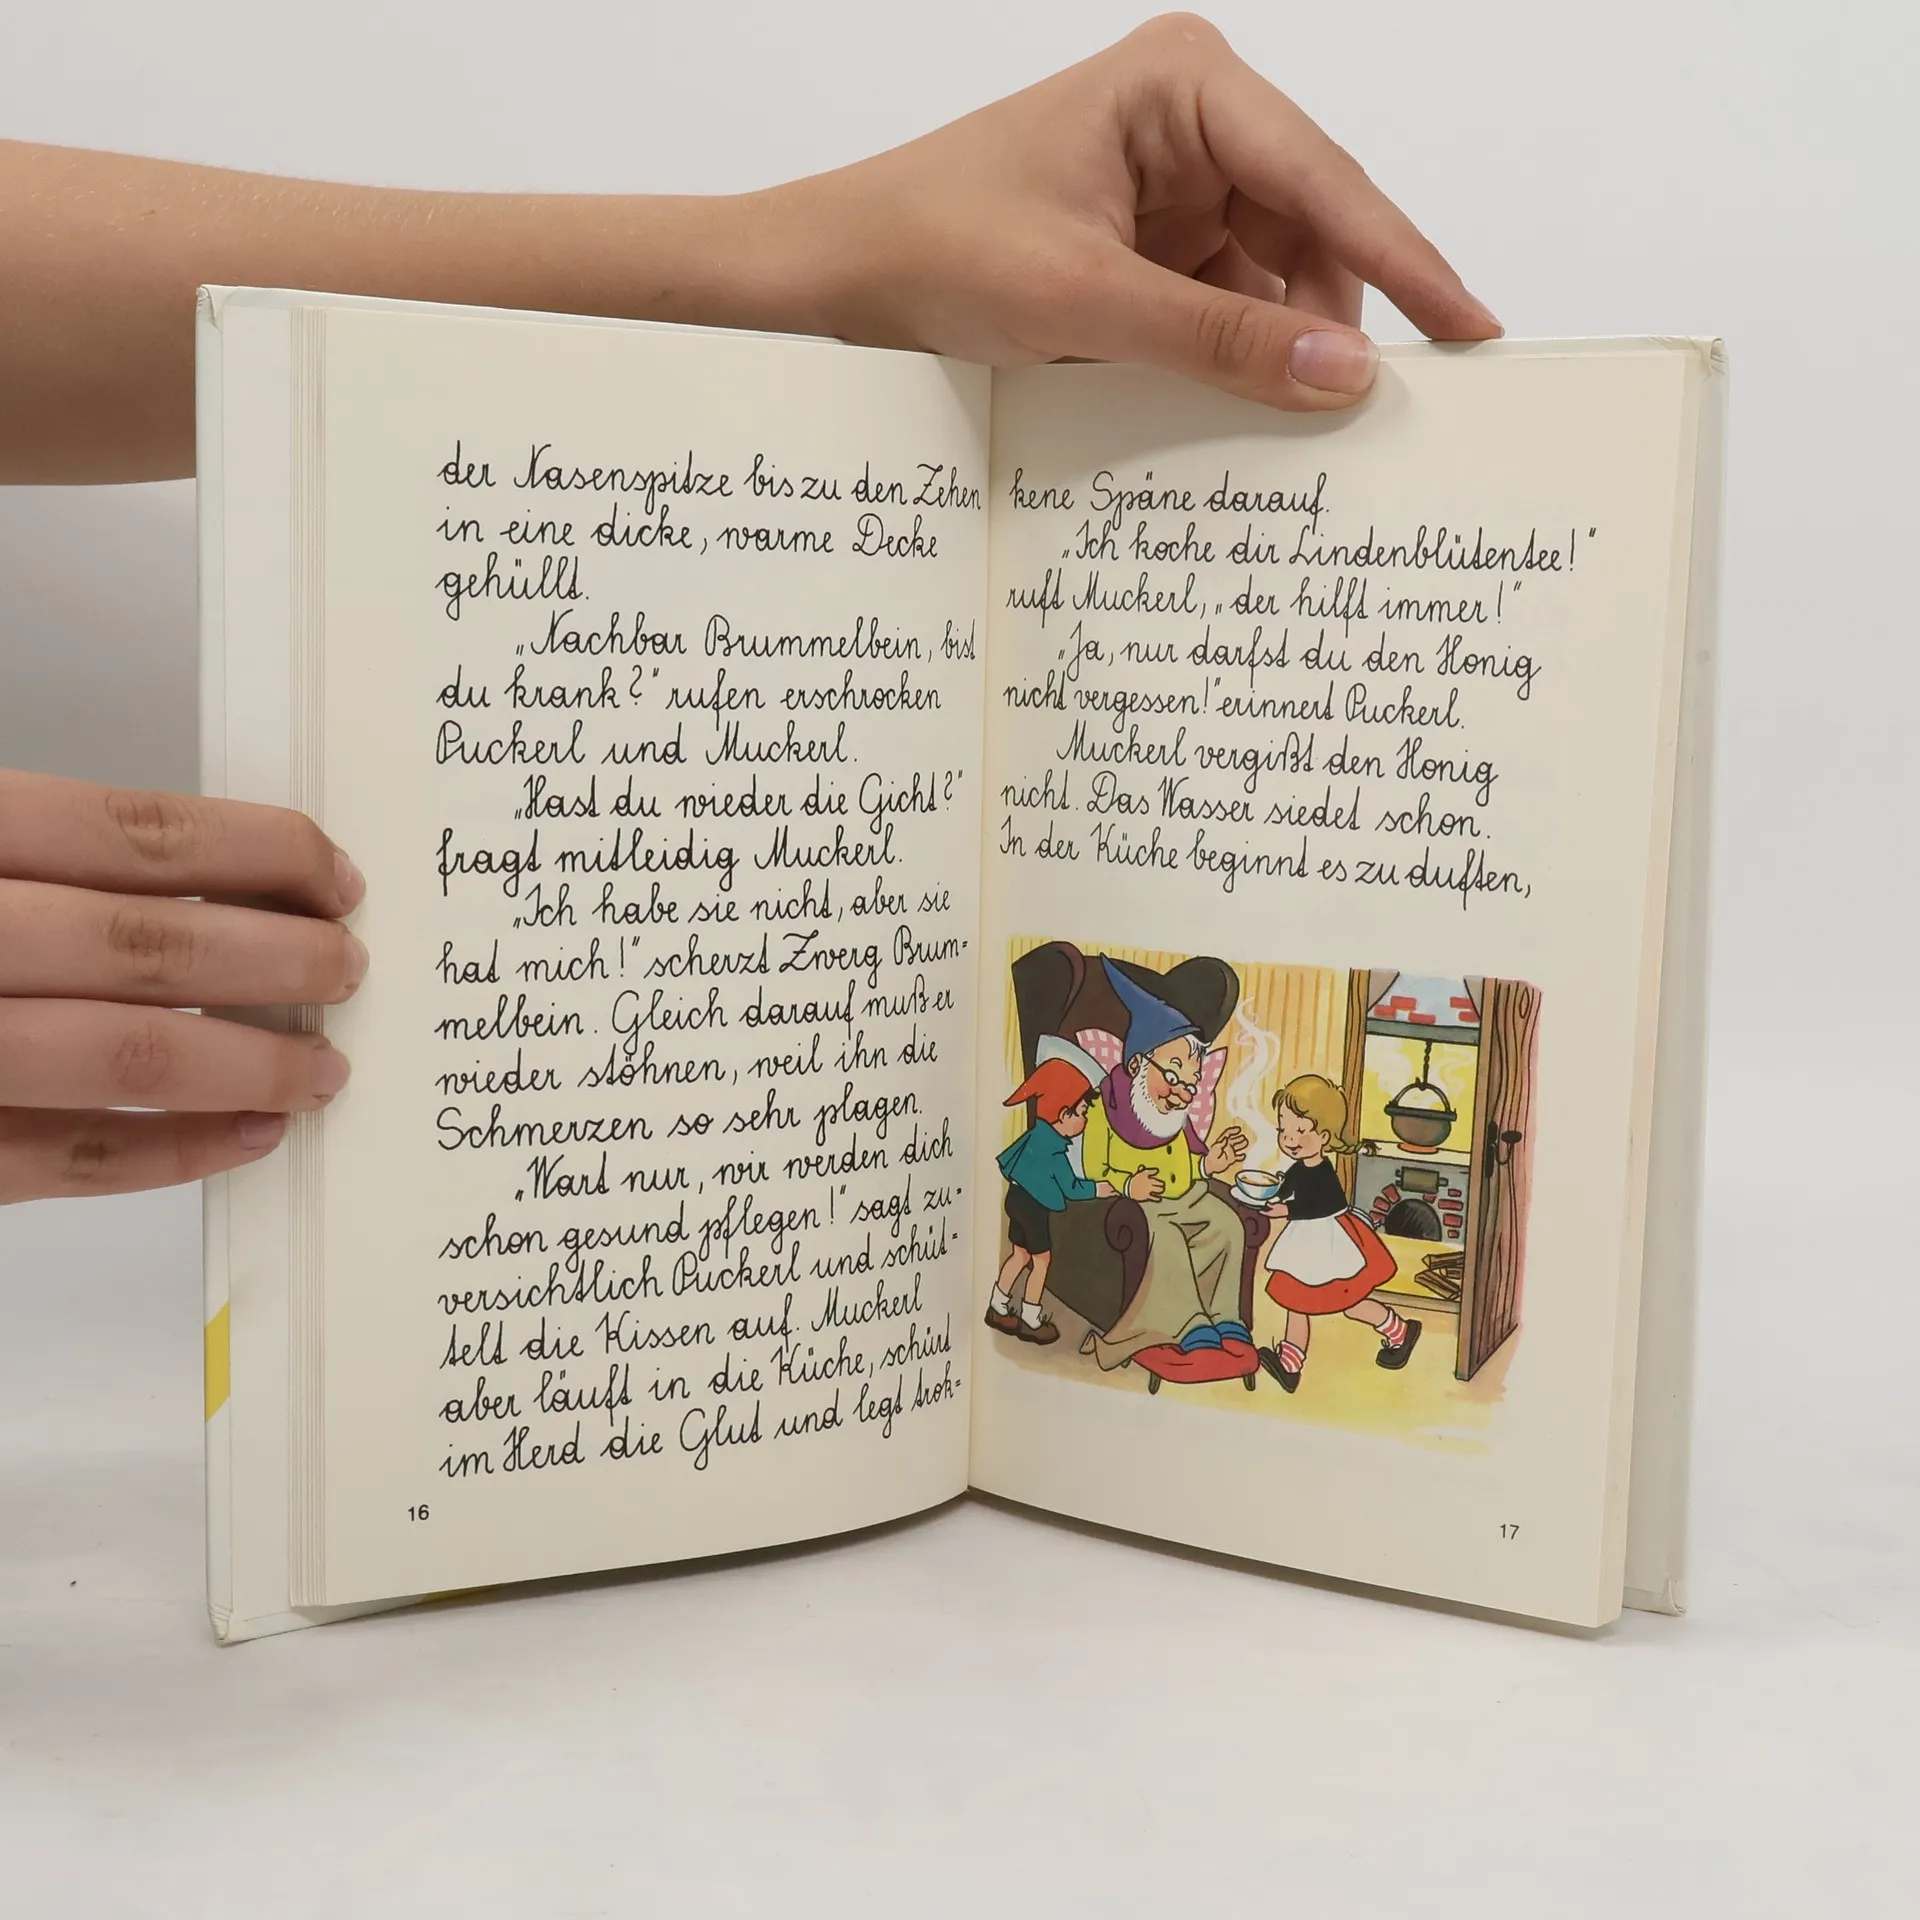 der Nasenspitze bis zu den Zehen
in eine dicke, warme Decke
gehüllt.
„Nachbar Brummelbein, bist
du krank?" rufen erschrocken
Puckerl und Muckerl.
„Hast du wieder die Gicht?"
fragt mitleidig Muckerl.
„Ich habe sie nicht, aber sie
hat mich!" scherzt Zwerg Brum=
melbein. Gleich darauf muß er
wieder stöhnen, weil ihn die
Schmerzen so sehr plagen.
„Wart nur, wir werden dich
schon gesund pflegen!" sagt zu=
versichtlich Puckerl und schüt=
telt die Kissen auf. Muckerl
aber läuft in die Küche, schürt
im Herd die Glut und legt trok=
16
kene Späne darauf.
„Ich koche dir Lindenblütentee!"
ruft Muckerl, „der hilft immer!"
„Ja, nur darfst du den Honig
nicht vergessen!" erinnert Puckerl.
Muckerl vergißt den Honig
nicht. Das Wasser siedet schon.
In der Küche beginnt es zu duften,
17